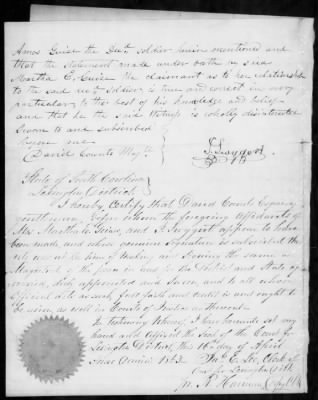 Amos Guise the Decd. soldier herein mentioned and
that the statement made under oath by said
Martha E. Guise the claimant as to her relationship
to the said decd. soldier, is true and correct in every
particular, to the best of his knowledge and belief
and that he the said Witness is wholly disinterested
Sworn to and subscribed
before me
David Counts Magte
J. Swygert
State of South Carolina
Lexington District
I hereby Certify that David Counts Esquire
before whom the foregoing affidavits of
Mrs. Martha Guise, and J. Swygert appear to have
been made, and whose genuine signature is subscribed thereto
was at the time of the same a
Magistrate of the peace in and for the District and State
duly appointed and sworn, and to all whose
official acts as such, full faith and credit is and ought to
be given, as well in Courts of Justice as thereout.
In testimony Whereof, I have hereunto set my
hand and affixed the seal of the Court for
Lexington District, this 16th day of April
Anno Domini 1863.
Clerk of
Court for Lexington Dist